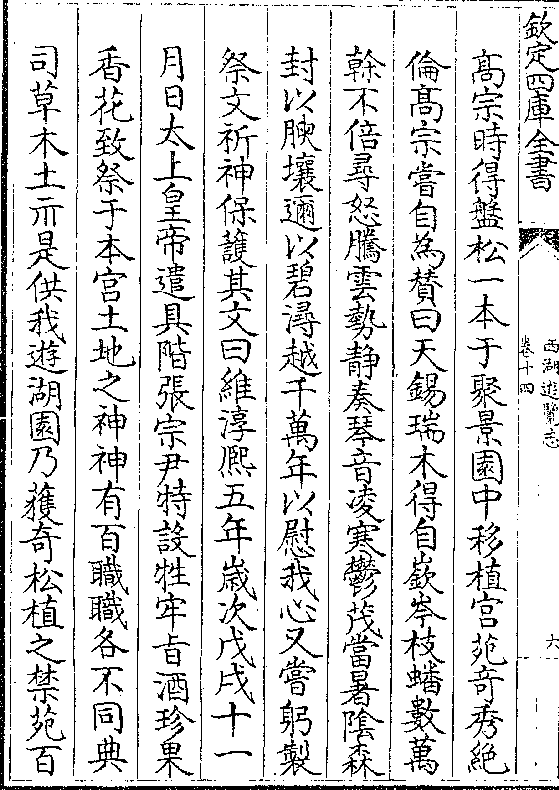 欽定四庫全書
西湖遊覽志
卷十四
六
髙宗時得盤松一本于聚景園中移植宫苑竒秀絶
倫髙宗嘗自為賛曰天錫瑞木得自嶔岑枝蟠數萬
榦不倍尋怒騰雲勢静奏琴音凌寒鬱茂當暑隂森
封以腴壤邇以碧潯越千萬年以慰我心又嘗躬製
祭文祈神保䕶其文曰維淳熈五年歲次戊戌十一
月日太上皇帝遣具階張宗尹特設牲牢旨酒珍果
香花致祭于本宫土地之神神有百職職各不同典
司草木土示是供我遊湖園乃蒦奇松植之禁苑百